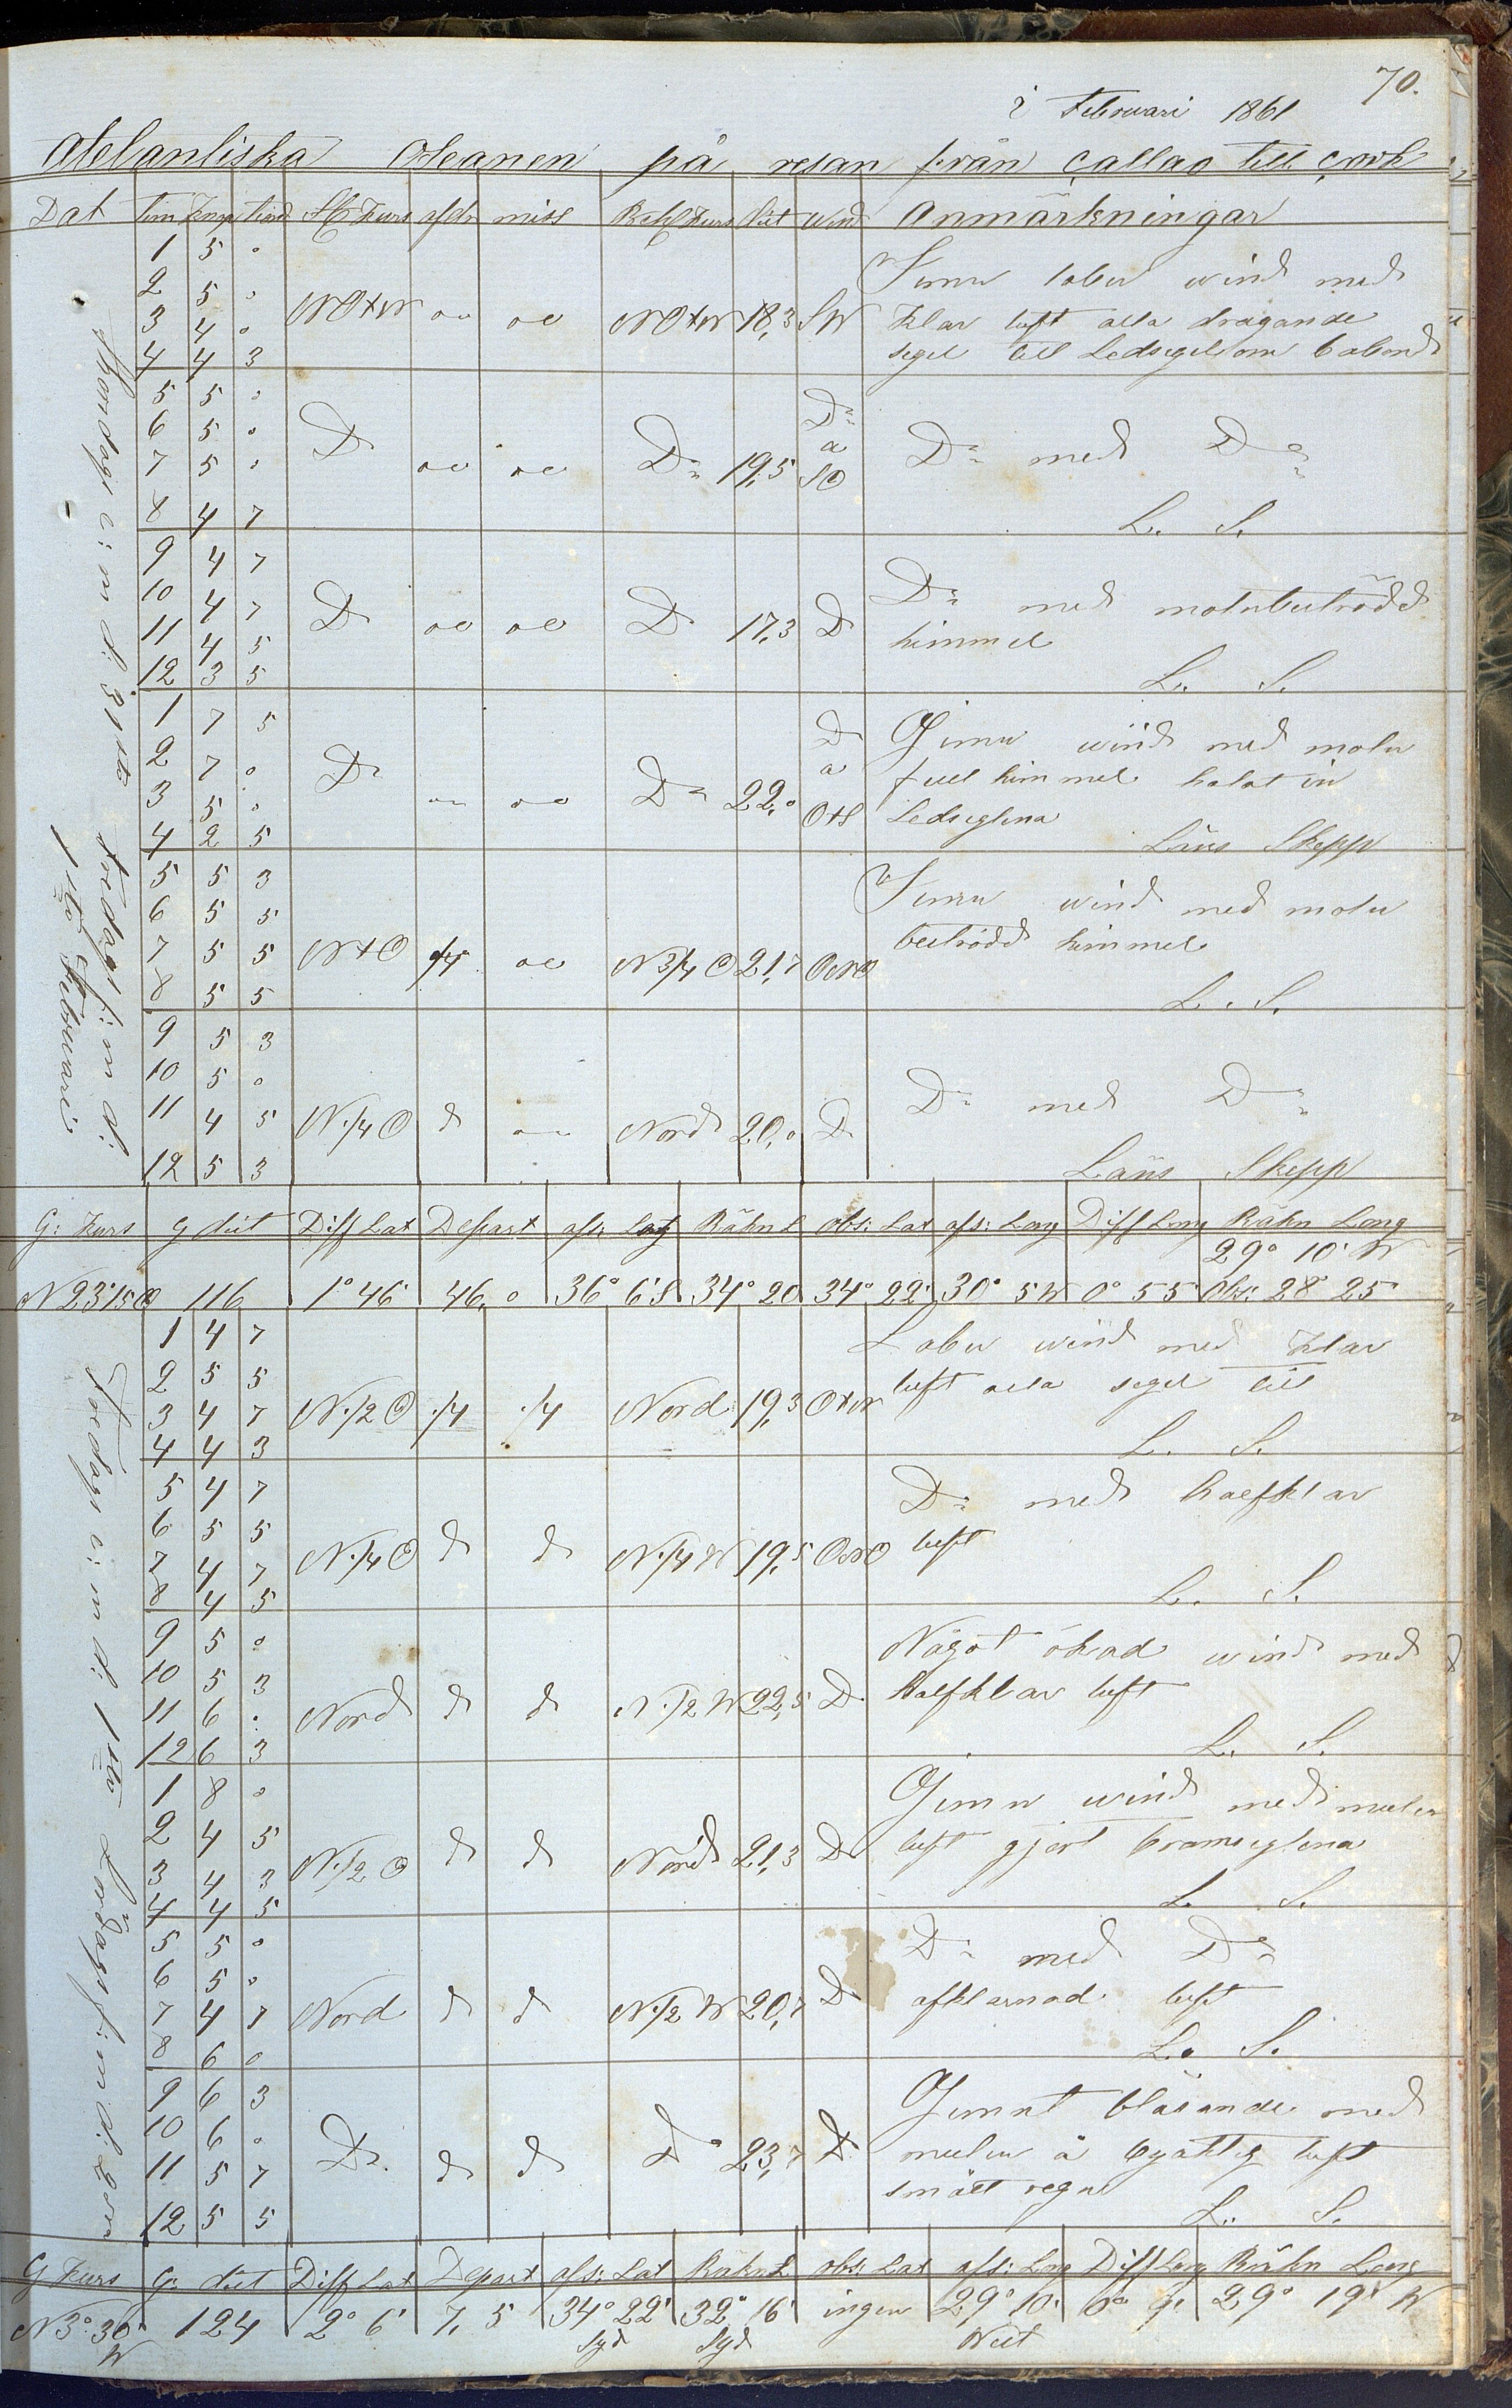 70.
i Februari 1861
Atelantiska Oceanen på resan från Callao till Cork
Dat Tim Knop tiond St Kurs afdr miss Beh Kurs Dist Wind Anmärkningar
Thorsdag e: m d: 31sta
1 5 0
2 5 0
3 4 0
4 4 3
NOtN oo oo NOtN 18,3 SW
Jemn laber wind med
klar luft alla dragande
segel till Ledsegel om babord
5 5 0
6 5 0
7 5 0
8 4 7
Do oo oo Do 19,5 Do a SO
Do med Do
L. S.
9 4 7
10 4 7
11 4 5
12 3 5
Do oo oo Do 17,3 Do
Do med molnbeströdd
himmel
L. S.
Fredag f: m d:
1sta Februari
1 7 5
2 7 0
3 5 0
4 2 5
Do oo oo Do 22,0 Do a OtS
Jemn wind med moln
full himmel halat in
Ledseglena
Läns Skepp
5 5 3
6 5 5
7 5 5
8 5 5
NtO 1/4 oo N 3/4 O 21,7 ONO
Jemn wind med moln
beströdd himmel
L. S.
9 5 3
10 5 0
11 4 5
12 5 3
N 1/4 O d oo Nord 20,0 D
Do med Do
Läns Skepp
G: Kurs g dist Diff Lat Depart afs: Lat Räkn L obs: Lat afs: Long Diff Long Räkn Long
29° 10' W
N 23°15 O 116 1° 46' 46,0 36° 6'S 34° 20 34° 22' 30° 5 W 0° 55' Obs: 28° 25
Fredag e: m d: 1sta
1 4 7
2 5 5
3 4 7
4 4 3
N 1/2 O 1/4 1/4 Nord 19,3 OtN
Laber wind med klar
luft alla segel till
L. S.
5 4 7
6 5 5
7 4 7
8 4 5
N 1/4 O d d N 1/4 W 19,5 ONO
Do med halfklar
luft
L. S.
9 5 0
10 5 3
11 6 0
12 6 3
Nord d d N 1/2 W 22,5 D
Något ökad wind med
halfklar luft
L. S.
Lördag f: m d: 2dra
1 8 0
2 4 5
3 4 3
4 4 5
N 1/2 O d d Nord 21,3 D
Jemn wind med mulen
luft gjort bramseglena
L. S.
5 5 0
6 5 0
7 4 7
8 6 0
Nord d d N 1/2 W 20,7 D
Do med Do
afklarnad luft
L. S.
9 6 3
10 6 0
11 5 7
12 5 5
Do d d do 23,7 D
Jemnt blåsande med
mulen å byaktig luft
smått regn
L. S.
G Kurs G: dist Diff Lat Depart afs: Lat Räkn L obs: Lat afs: Long Diff Long Räkn Long
N 3° 30' W 124 2° 6' 7,5 34° 22' Syd 32° 16' Syd ingen 29° 10' West 0° 9' 29° 19' W